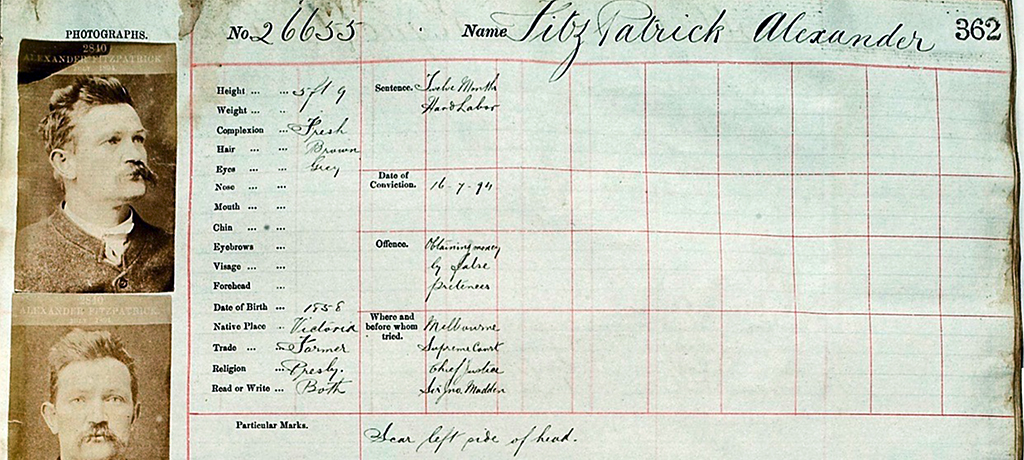 PHOTOGRAPHS.
No. 26655
Name FitzPatrick Alexander
362
2840
ALEXANDER FITZPATRICK
ALEXANDER FITZPATRICK.
Height ... ... 5ft 9
Weight ... ...
Complexion ... Fresh
Hair ... ... Brown
Eyes ... ... Grey
Nose ... ...
Mouth ... ...
Chin ... ...
Eyebrows ...
Visage ... ...
Forehead ...
Date of Birth ... 1858
Native Place .. Victoria
Trade ... ... Farmer
Religion ... Presby.
Read or Write ... Both
Sentence. Twelve Months
Hard Labor
Date of
Conviction. 16-7-94
Offence. Obtaining money
by false
pretences
Where and
before whom
tried.
Melbourne
Supreme Court
Chief Justice
Sir Jno. Madden
Particular Marks.
Scar left side of head.